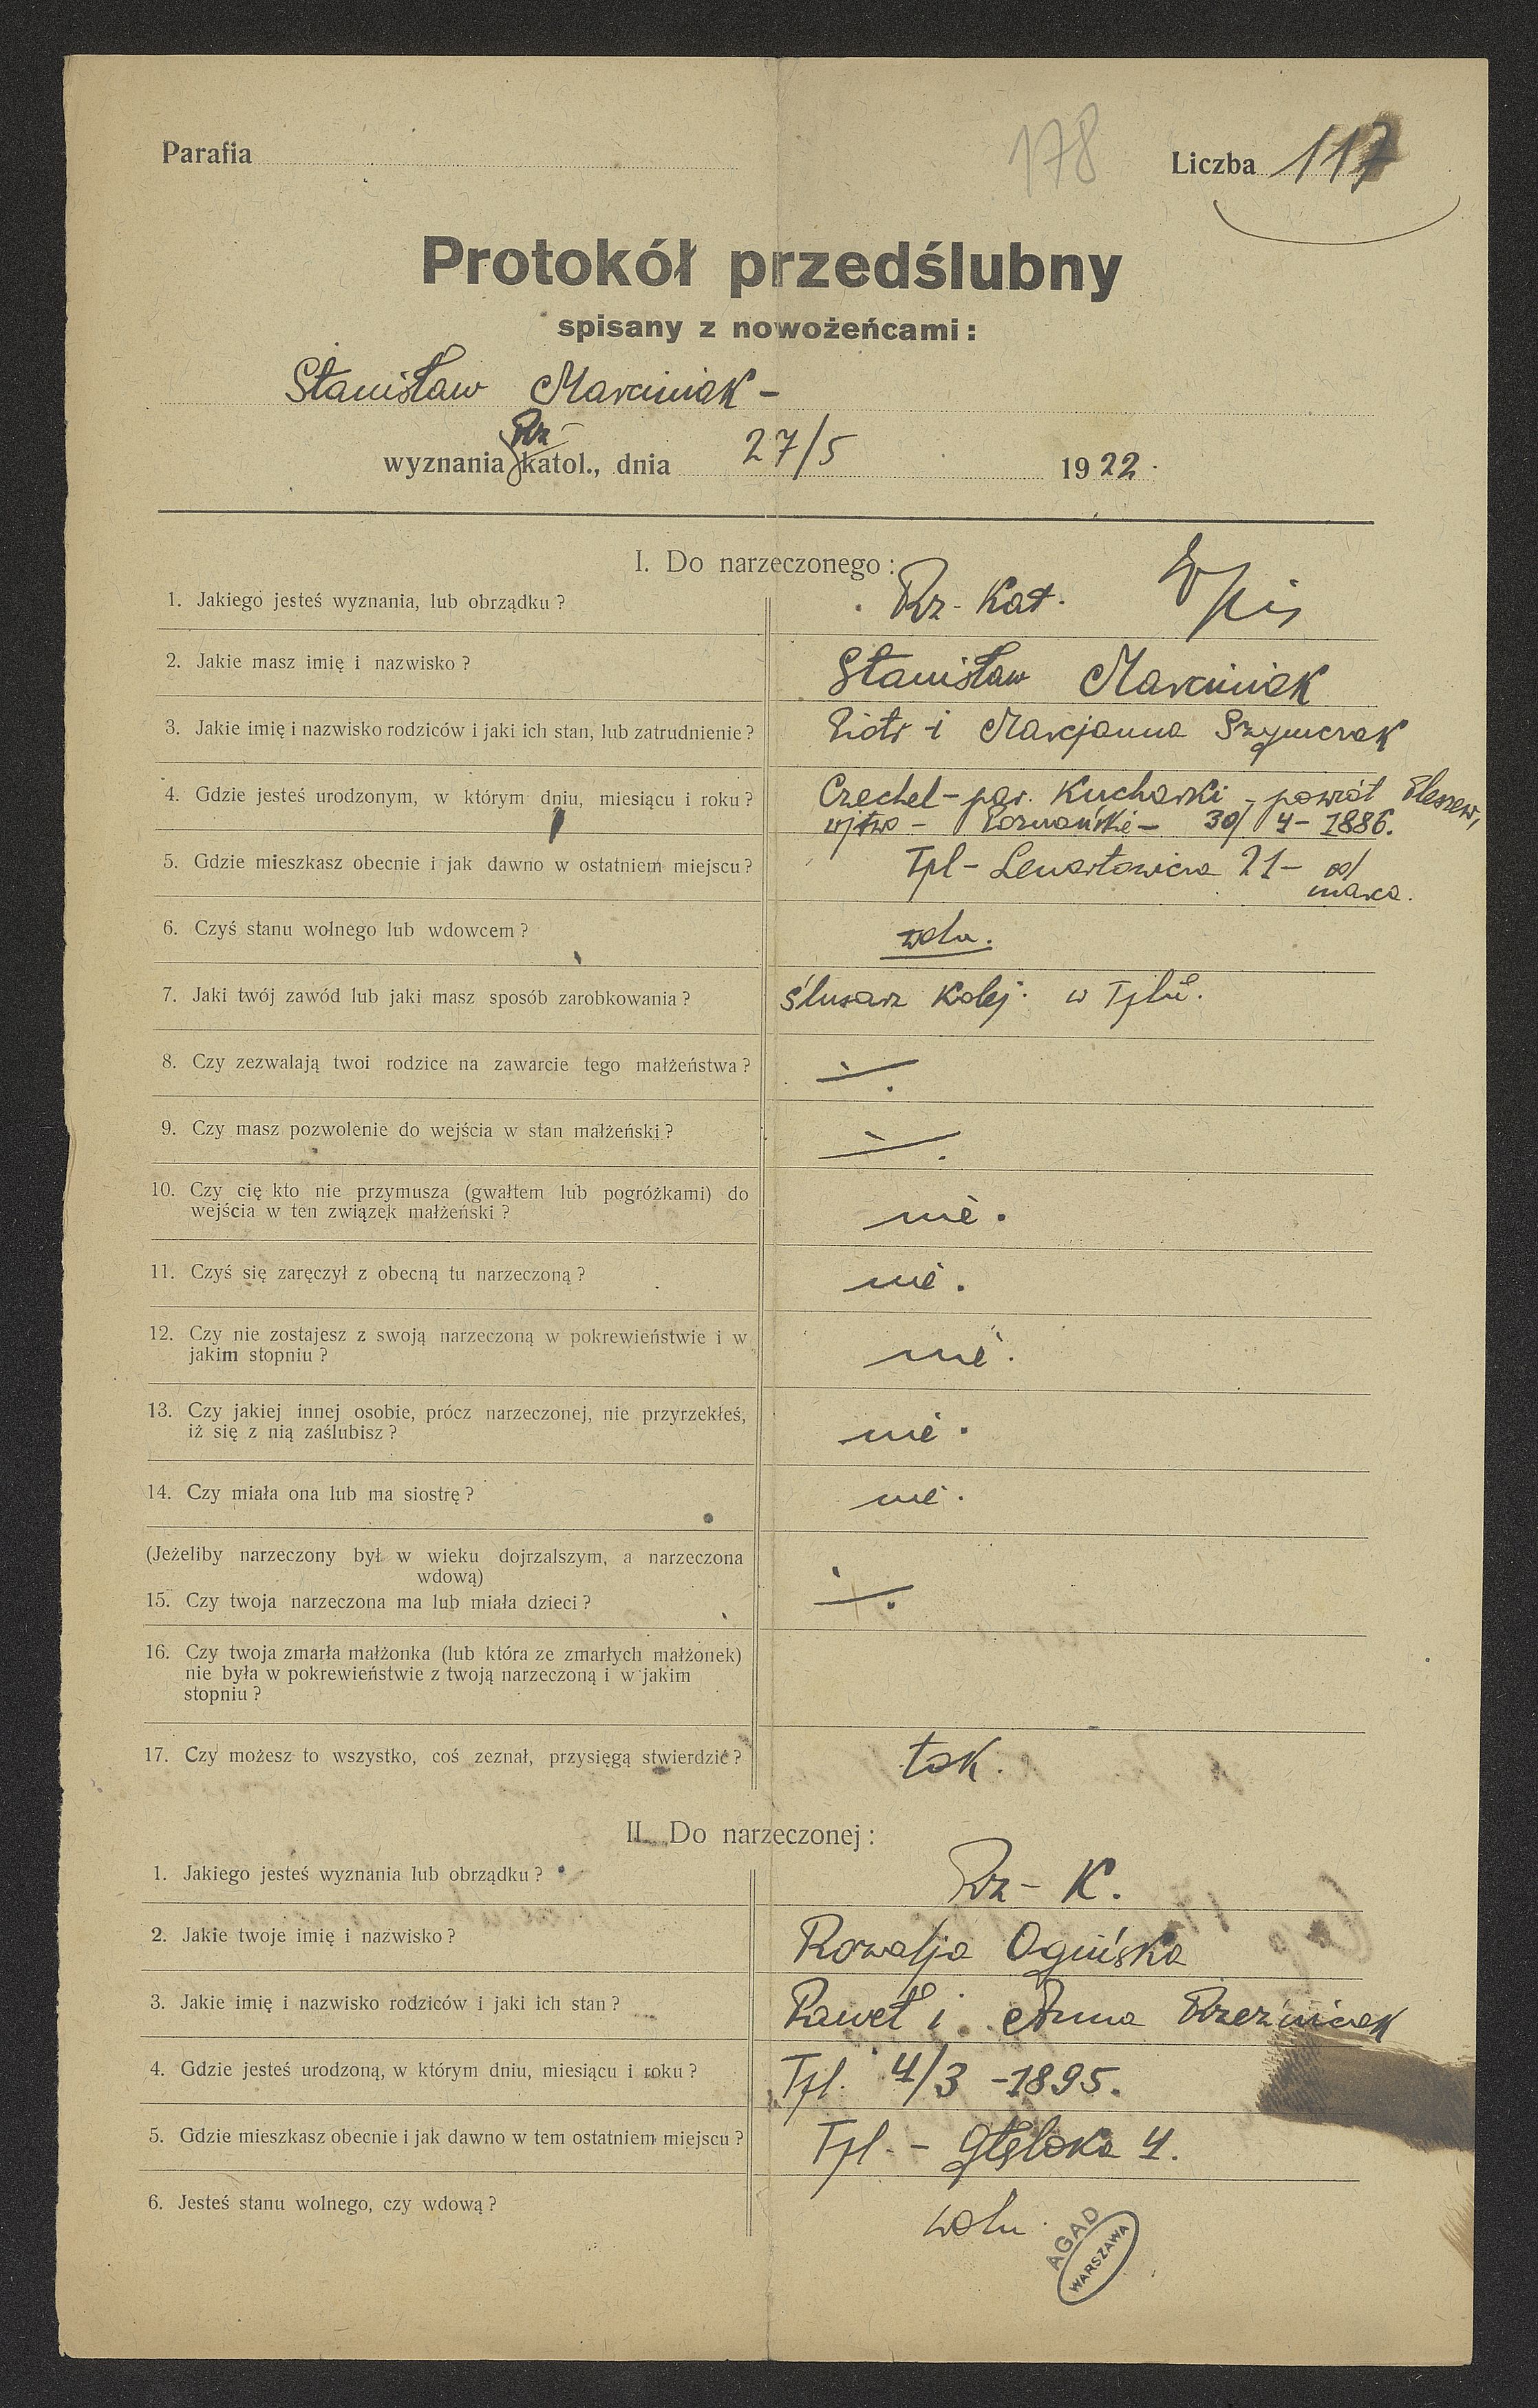 178
Parafia Liczba 117
Protokół przedślubny
spisany z nowożeńcami:
Stanisław Marciniak -
Rz-
wyznania katol., dnia 27/5 1922.
I. Do narzeczonego:
1. Jakiego jesteś wyznania, lub obrządku? Rz-Kat.
2. Jakie masz imię i nazwisko? Stanisław Marciniak
3. Jakie imię i nazwisko rodziców i jaki ich stan, lub zatrudnienie? Piotr i Marcjanna Szymczak
4. Gdzie jesteś urodzonym, w którym dniu, miesiącu i roku? Czechel-par. Kucharki - powiat Pleszew,
wjtwo - Poznańskie - 30/4-1886.
5. Gdzie mieszkasz obecnie i jak dawno w ostatniem miejscu? Tpl-Lenartowicza 21- od
marca.
6. Czyś stanu wolnego lub wdowcem? woln.
7. Jaki twój zawód lub jaki masz sposób zarobkowania? ślusarz Kolej. w Tplu.
8. Czy zezwalają twoi rodzice na zawarcie tego małżeństwa?
9. Czy masz pozwolenie do wejścia w stan małżeński?
10. Czy cię kto nie przymusza (gwałtem lub pogróżkami) do
wejścia w ten związek małżeński? nie.
11. Czyś się zaręczył z obecną tu narzeczoną? nie.
12. Czy nie zostajesz z swoją narzeczoną w pokrewieństwie i w
jakim stopniu? nie.
13. Czy jakiej innej osobie, prócz narzeczonej, nie przyrzekłeś,
iż się z nią zaślubisz? nie.
14. Czy miała ona lub ma siostrę? nie.
(Jeżeliby narzeczony był w wieku dojrzalszym, a narzeczona
wdową)
15. Czy twoja narzeczona ma lub miała dzieci?
16. Czy twoja zmarła małżonka (lub która ze zmarłych małżonek)
nie była w pokrewieństwie z twoją narzeczoną i w jakim
stopniu?
17. Czy możesz to wszystko, coś zeznał, przysięgą stwierdzić? tak.
II. Do narzeczonej:
1. Jakiego jesteś wyznania lub obrządku? Rz-K.
2. Jakie twoje imię i nazwisko? Rozalja Ogińska
3. Jakie imię i nazwisko rodziców i jaki ich stan? Paweł i Anna Rzeźniczak
4. Gdzie jesteś urodzoną, w którym dniu, miesiącu i roku? Tpl. 4/3 -1895.
5. Gdzie mieszkasz obecnie i jak dawno w tem ostatniem miejscu? Tpl. - Głęboka 4.
6. Jesteś stanu wolnego, czy wdową? woln.
AGAD
WARSZAWA